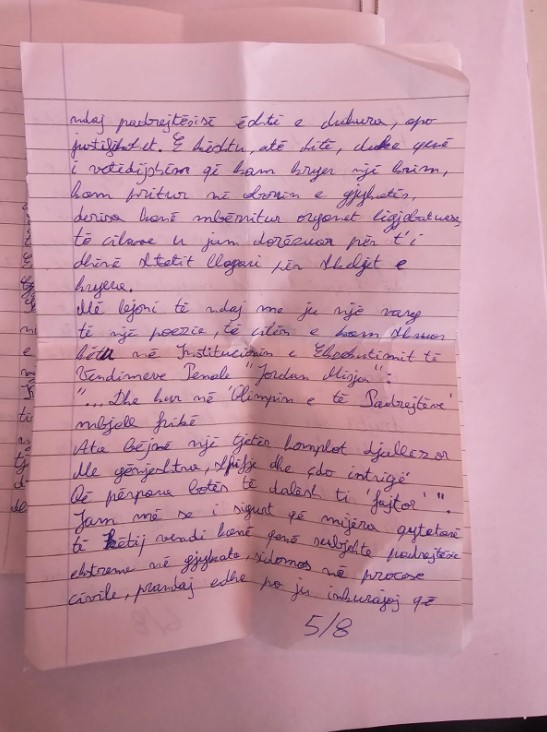 ndaj padrejtësisë është e dukura, apo
justifikohet. E kështu, atë ditë, duke qenë
i vetëdijshëm që kam kryer një krim,
kam pritur në oborrin e gjykatës,
derisa kanë mbërritur organet ligjzbatuese,
të cilave u jam dorëzuar për t'i
dhënë shtetit llogari për shkeljet e
kryera.
Më lejoni të ndaj me ju një varg
të një poezie, të cilën e kam shkruar
këtu në Institucionin e Ekzekutimit të
Vendimeve Penale "Jordan Misja":
"...Dhe kur në 'Olimpin e të Padrejtëve'
mbjell frikë
Ata bëjnë një tjetër komplot djallëzor
Me gënjeshtra, shpifje dhe çdo intrigë
Që përpara botës të dalësh ti 'fajtor'".
Jam më se i sigurt që mijëra qytetarë
të këtij vendi kanë qenë subjekte padrejtësie
ekstreme në gjykata, sidomos në procese
civile, prandaj edhe po ju inkurajoj që
5/8